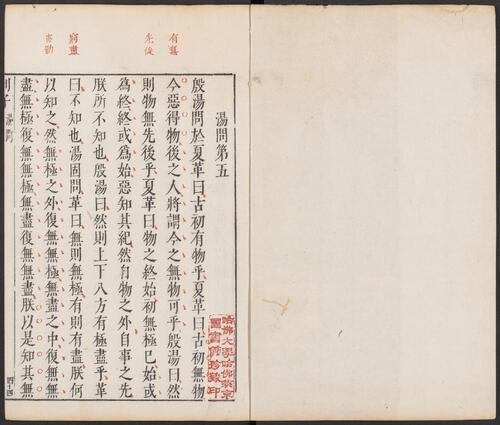 湯問第五
殷湯問於夏革曰古初有物乎夏革曰古初無物
今惡得物後之人將謂今之無物可乎殷湯曰然
則物無先後乎夏革曰物之終始初無極已始或
為終終或為始惡知其紀然自物之外自事之先
朕所不知也殷湯曰然則上下八方有極盡乎革
曰不知也湯固問革曰無則無極有則有盡朕何
以知之然無極之外復無無極無盡之中復無無
盡無極復無無極無盡復無無盡朕以是知其無
有喜
先後
窮盡
列子 湯問
四十四
哈佛大學哈佛燕京
圖書館珍藏印